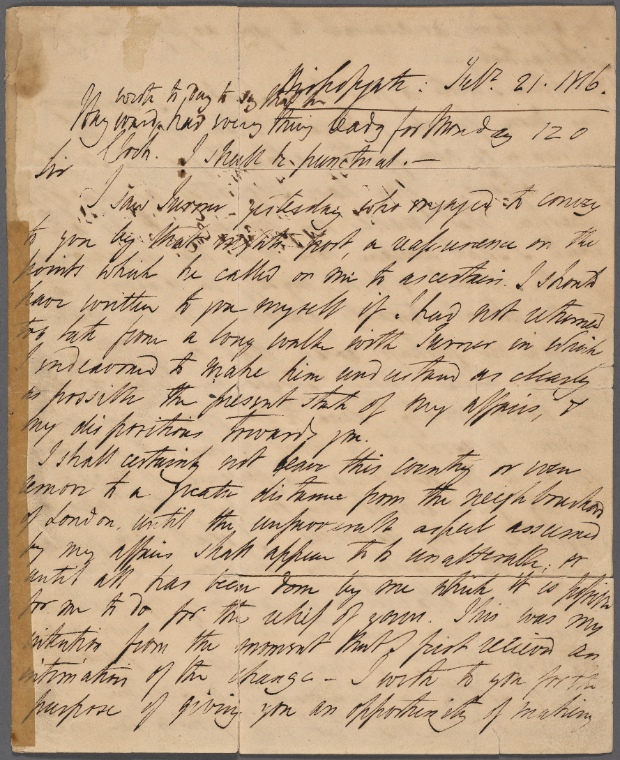 Bishopgate. Feby. 21. 1816.
to day to say that
Hayward had every thing ready for Monday 12 O
Clock. I shall be punctual.—
Sir
I saw Turner yesterday who engaged to convey
to you by that night's post, a reassurance on the
points which he called on me to ascertain. I should
have written to you myself if I had not returned
too late from a long walk with Turner in which
I endeavoured to make him understand as clearly
as possible the present state of my affairs, &
my dispositions towards you.
I shall certainly not leave this country or even
remove to a greater distance from the neighbourhood
of London, until the unfavourable aspect assumed
by my affairs shall appear to be unalterable, or
until all has been done by me which it is possible
for me to do for the relief of yours. This was my
intention from the moment that I first received an
intimation of the change — I write to you for the
purpose of giving you an opportunity of making